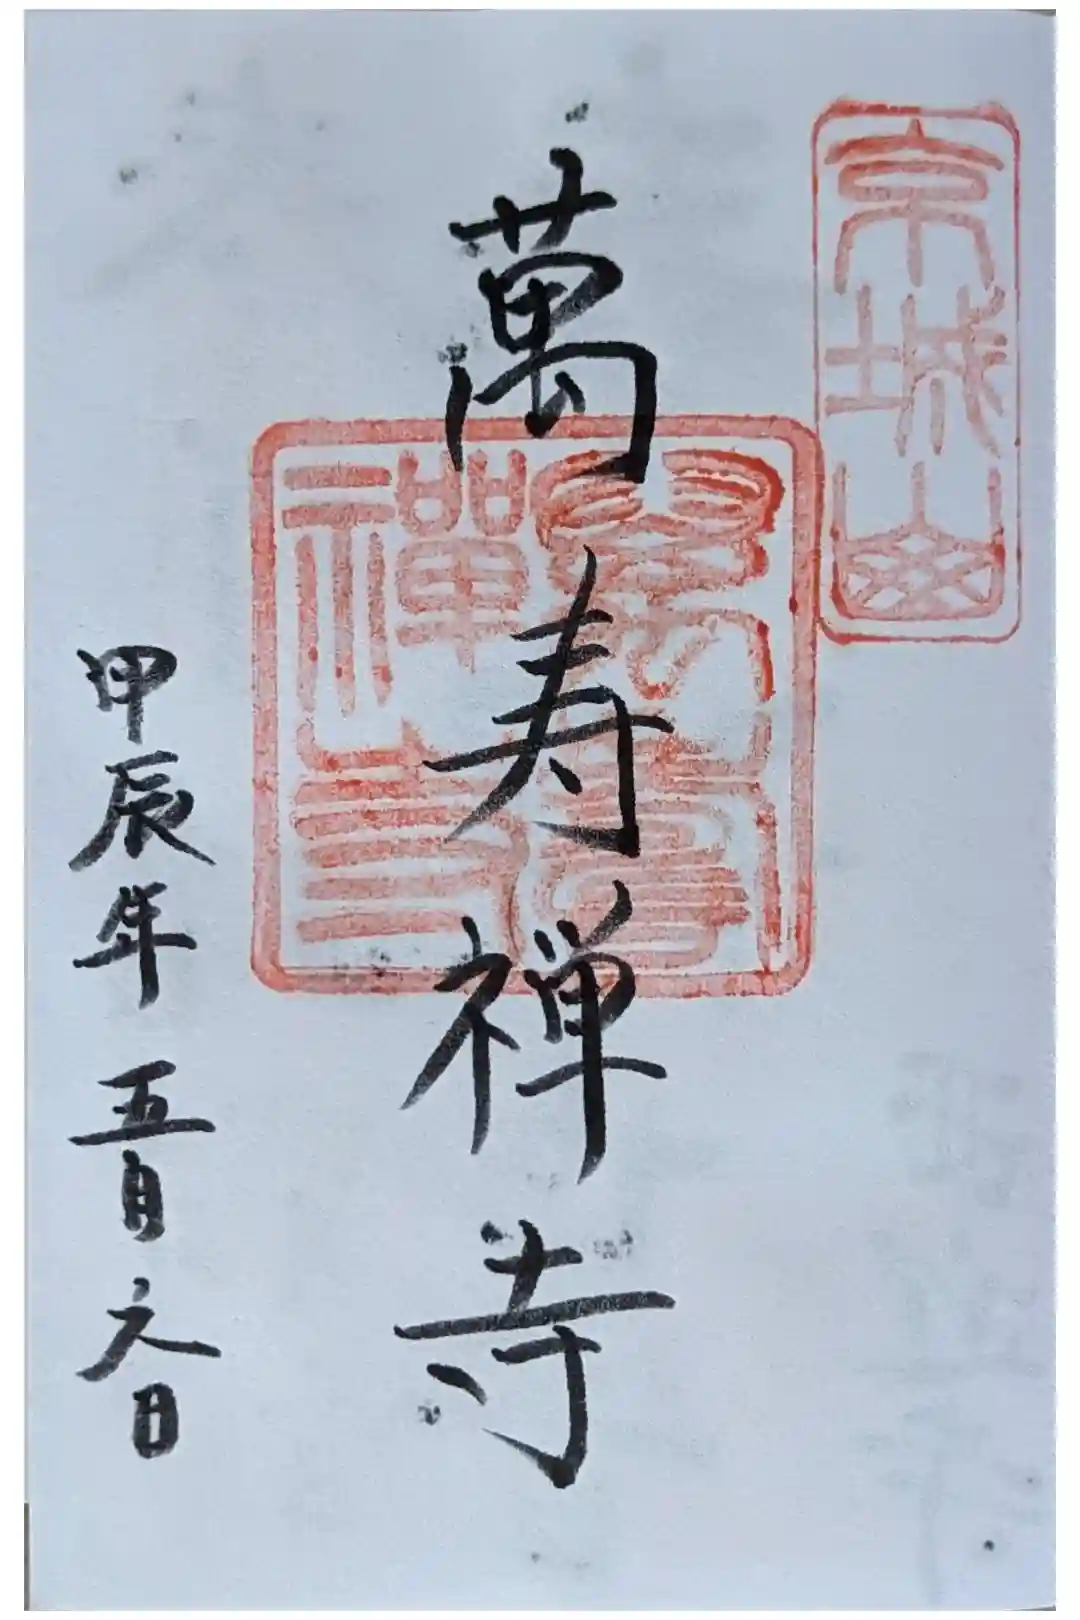 京城山
萬寿禅寺
萬壽
禪寺
甲辰年 五月 六日